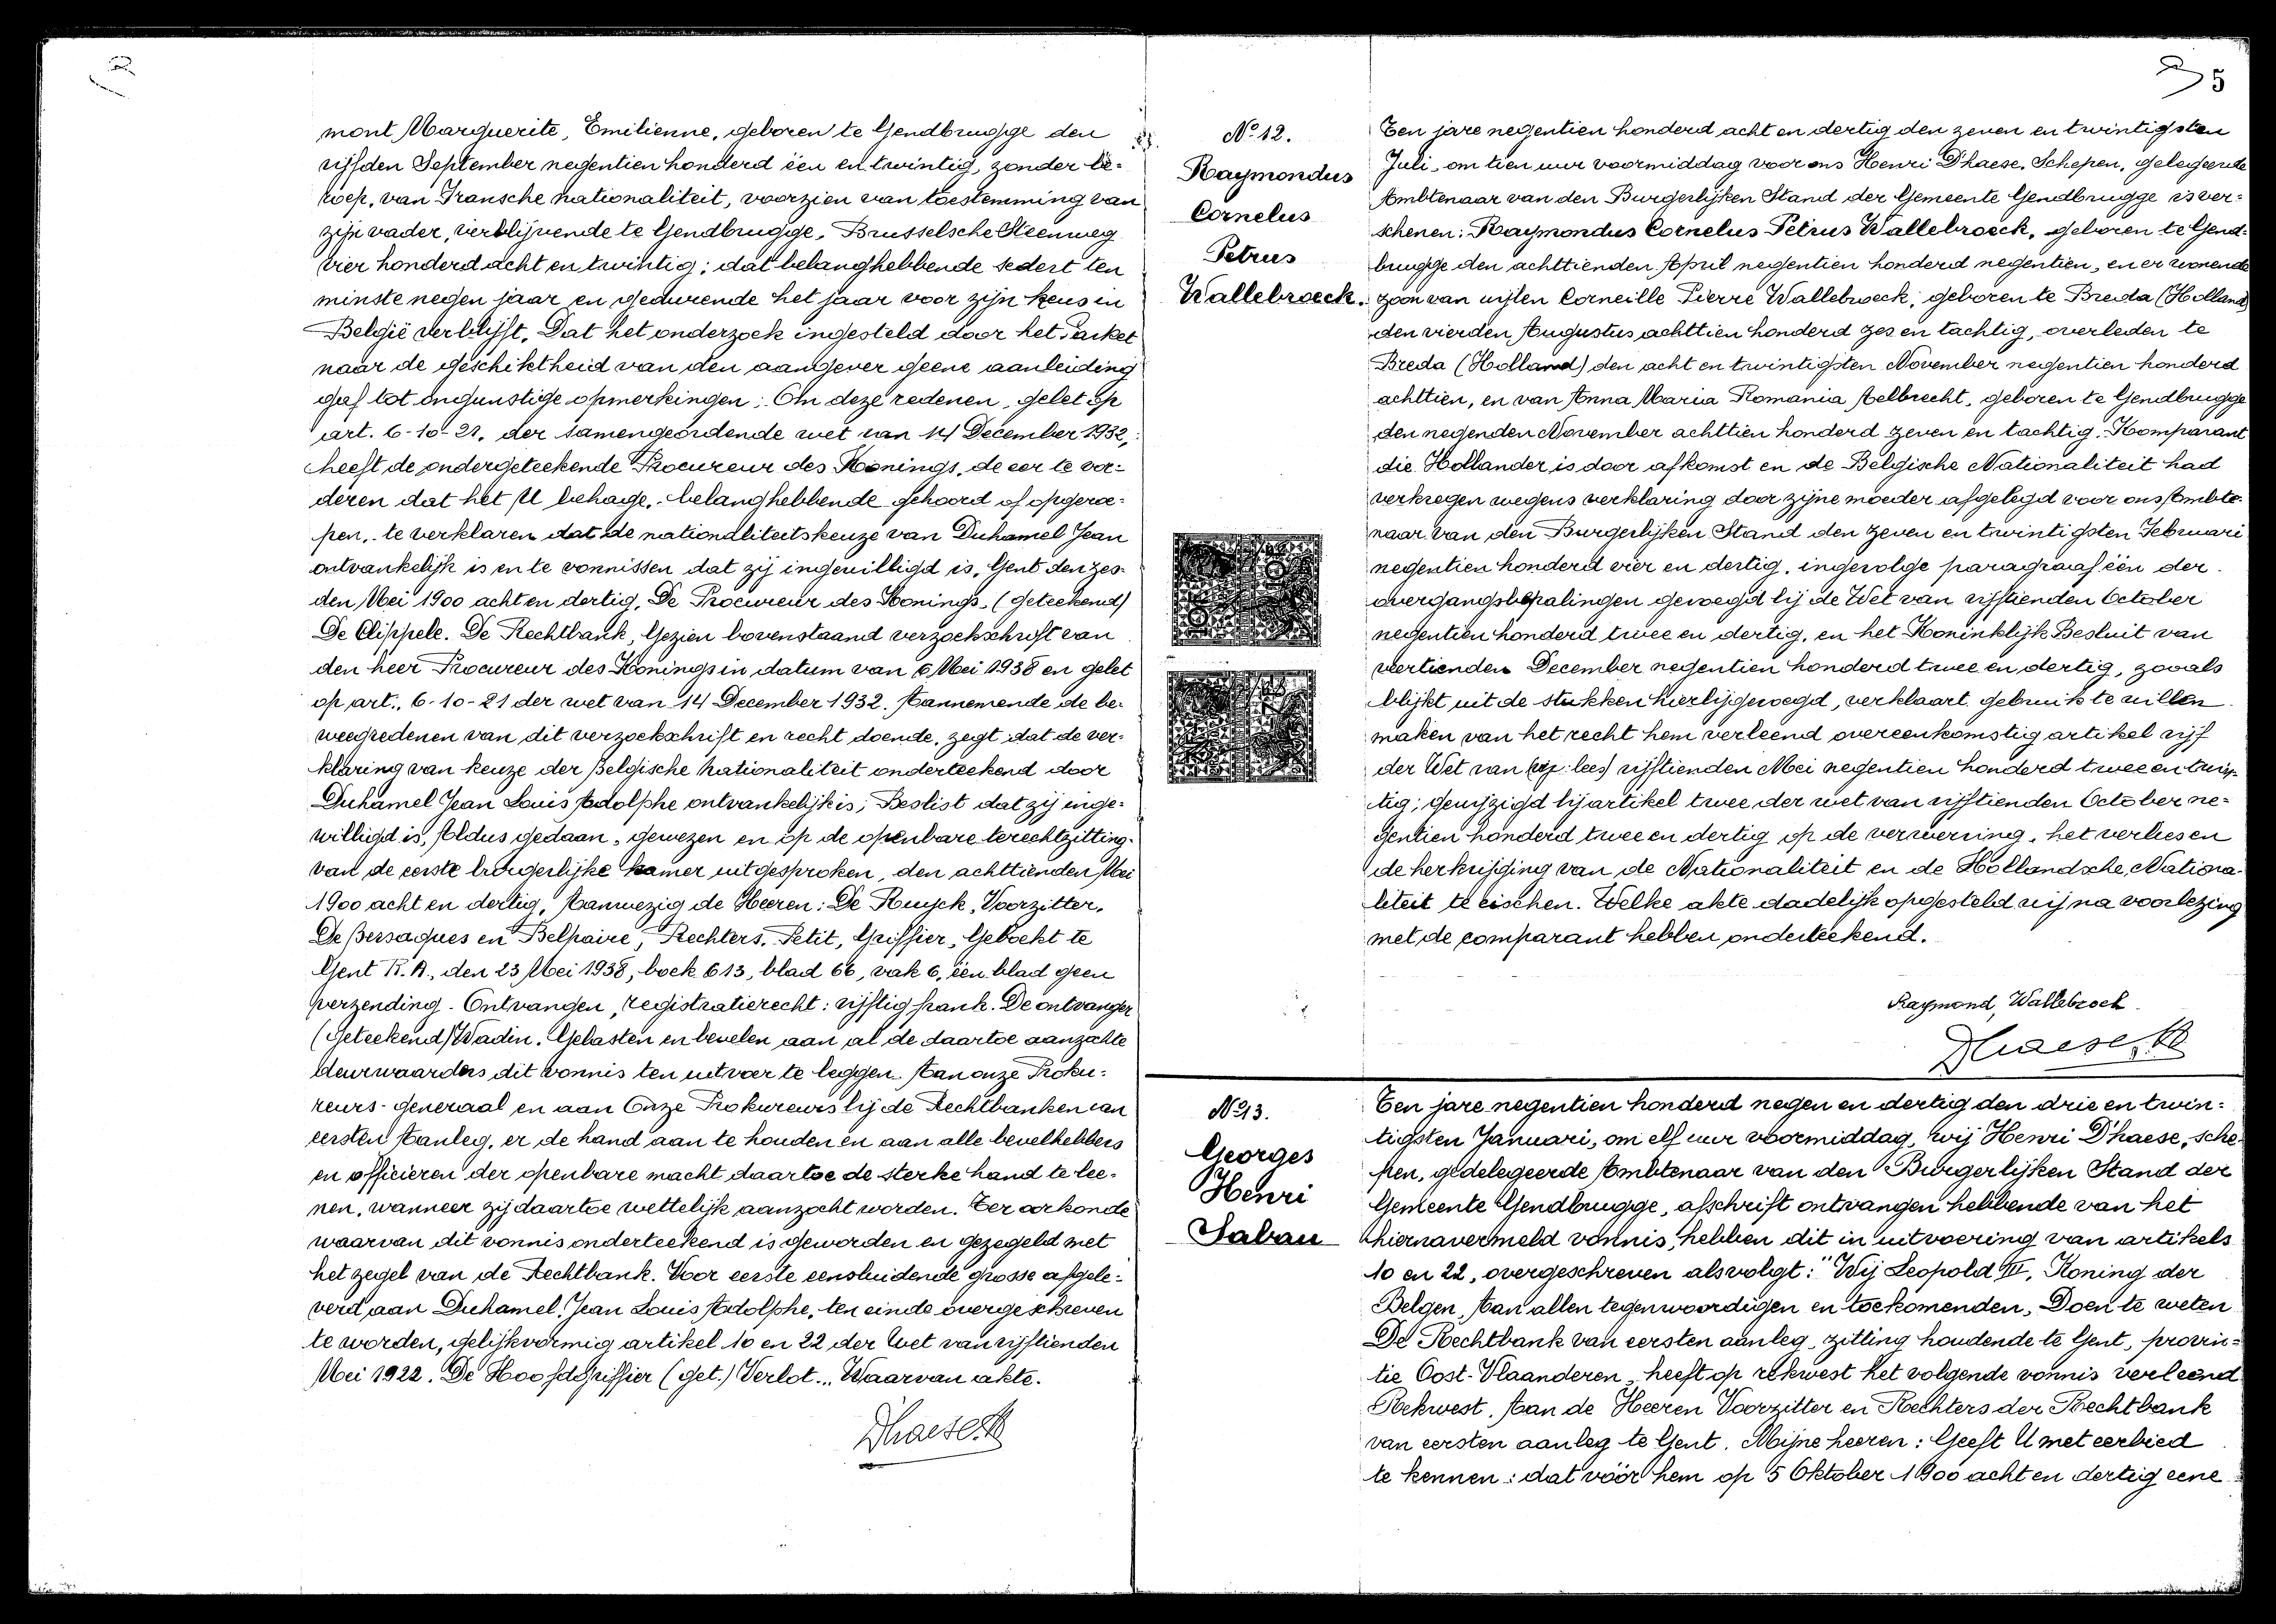 mont Marguerite, Emilienne, geboren te Gendbrugge den
vijfden September negentien honderd één en twintig, zonder be=
roep, van Fransche nationaliteit, voorzien van toestemming van
zijn vader, verblijvende te Gendbrugge, Brusselsche Steenweg
vier honderd acht en twintig; dat belanghebbende sedert ten
minste negen jaar en gedurende het jaar voor zijn keus in
België verblijft. Dat het onderzoek ingesteld door het Parket
naar de geschiktheid van den aangever geene aanleiding
gaf tot ongunstige opmerkingen; Om deze redenen, gelet op
art. 6-10-21, der samengeordende wet van 14 December 1932,
heeft de ondergeteekende Procureur des Konings, de eer te vor=
deren dat het U behage, belanghebbende gehoord of opgeroe=
pen, te verklaren dat de nationaliteitskeuze van Duhamel Jean
ontvankelijk is en te vonnissen dat zij ingewilligd is, Gent den zes=
den Mei 1900 acht en dertig, De Procureur des Konings, (geteekend)
De Clippele. De Rechtbank, Gezien bovenstaand verzoekschrift van
den heer Procureur des Konings in datum van 6 Mei 1938 en gelet
op art. 6-10-21 der wet van 14 December 1932. Aannemende de be=
weegredenen van dit verzoekschrift en recht doende, zegt dat de ver=
klaring van keuze der Belgische nationaliteit onderteekend door
Duhamel Jean Louis Adolphe ontvankelijk is; Beslist dat zij inge=
willigd is, Aldus gedaan, gewezen en op de openbare terechtzitting
van de eerste burgerlijke kamer uitgesproken, den achttienden Mei
1900 acht en dertig, Aanwezig de Heeren: De Ruyck, Voorzitter,
De Bersaques en Belpaire, Rechters, Petit, Griffier, Geboekt te
Gent R.A., den 23 Mei 1938, boek 613, blad 66, vak 6, één blad geen
verzending. Ontvangen, registratierecht: vijftig frank. De ontvanger
(Geteekend) Wadin. Gelasten en bevelen aan al de daartoe aanzochte
deurwaarders dit vonnis ten uitvoer te leggen. Aan onze Proku=
reurs-generaal en aan Onze Prokureurs bij de Rechtbanken van
eersten Aanleg, er de hand aan te houden en aan alle bevelhebbers
en officieren der openbare macht daartoe de sterke hand te lee=
nen, wanneer zij daartoe wettelijk aanzocht worden. Ter oorkonde
waarvan dit vonnis onderteekend is geworden en gezegeld met
het zegel van de Rechtbank. Voor eerste eensluidende grosse afgele=
verd aan Duhamel, Jean Louis Adolphe, ten einde overgeschreven
te worden, gelijkvormig artikel 10 en 22 der Wet van vijftienden
Mei 1922. De Hoofdgriffier (get.) Verlot... Waarvan akte.
Dhaese H
5
No 12.
Raymondus
Cornelus
Petrus
Wallebroeck.
Ten jare negentien honderd acht en dertig den zeven en twintigsten
Juli, om tien uur voormiddag voor ons Henri D'haese, Schepen, gelegeerde
Ambtenaar van den Burgerlijken Stand der Gemeente Gendbrugge is ver=
schenen: Raymondus Cornelus Petrus Wallebroeck, geboren te Gend=
brugge den achttienden April negentien honderd negentien, en er wonende
zoon van wijlen Corneille Pierre Wallebroeck, geboren te Breda (Holland)
den vierden Augustus achttien honderd zes en tachtig, overleden te
Breda (Holland) den acht en twintigsten November negentien honderd
achttien, en van Anna Maria Romania Aelbrecht, geboren te Gendbrugge
den negenden November achttien honderd zeven en tachtig. Komparant
die Hollander is door afkomst en de Belgische Nationaliteit had
verkregen wegens verklaring door zijne moeder afgelegd voor ons Ambte=
naar van den Burgerlijken Stand den zeven en twintigsten Februari
negentien honderd vier en dertig, ingevolge paragraaf één der
overgangsbepalingen gevoegd bij de Wet van vijftienden October
negentien honderd twee en dertig, en het Koninklijk Besluit van
veertienden December negentien honderd twee en dertig, zooals
blijkt uit de stukken hierbijgevoegd, verklaart gebruik te willen
maken van het recht hem verleend overeenkomstig artikel vijf
der Wet van lees) vijftienden Mei negentien honderd twee en twin=
tig; gewijzigd bij artikel twee der wet van vijftienden October ne=
gentien honderd twee en dertig op de verwerving, het verlies en
de herkrijging van de Nationaliteit en de Hollandsche Nationa=
liteit te eischen. Welke akte dadelijk opgesteld wij na voorlezing
met de comparant hebben onderteekend.
Raymond, Wallebroeck
Dhaese H
No 13.
Georges
Henri
Sabau
Ten jare negentien honderd negen en dertig den drie en twin=
tigsten Januari, om elf uur voormiddag, wij Henri D'haese, sche=
pen, gedelegeerde Ambtenaar van den Burgerlijken Stand der
Gemeente Gendbrugge, afschrift ontvangen hebbende van het
hiernavermeld vonnis, hebben dit in uitvoering van artikels
10 en 22, overgeschreven als volgt: "Wij Leopold III, Koning der
Belgen, Aan allen tegenwoordigen en toekomenden, Doen te weten
De Rechtbank van eersten aanleg, zitting houdende te Gent, provin=
tie Oost-Vlaanderen, heeft op rekwest het volgende vonnis verleend
Rekwest. Aan de Heeren Voorzitter en Rechters der Rechtbank
van eersten aanleg te Gent. Mijne heeren: Geeft U met eerbied
te kennen: dat vóór hem op 5 Oktober 1900 acht en dertig eene